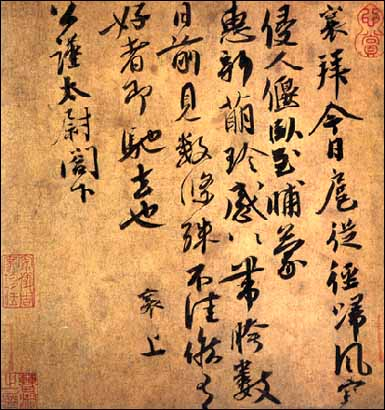 襄拜今日扈從徑歸風寒
侵人偃臥至晡蒙
惠新萌珍感〻帶胯數
日前見數條殊不佳候有
好者即馳去也
襄上
公謹太尉閣下